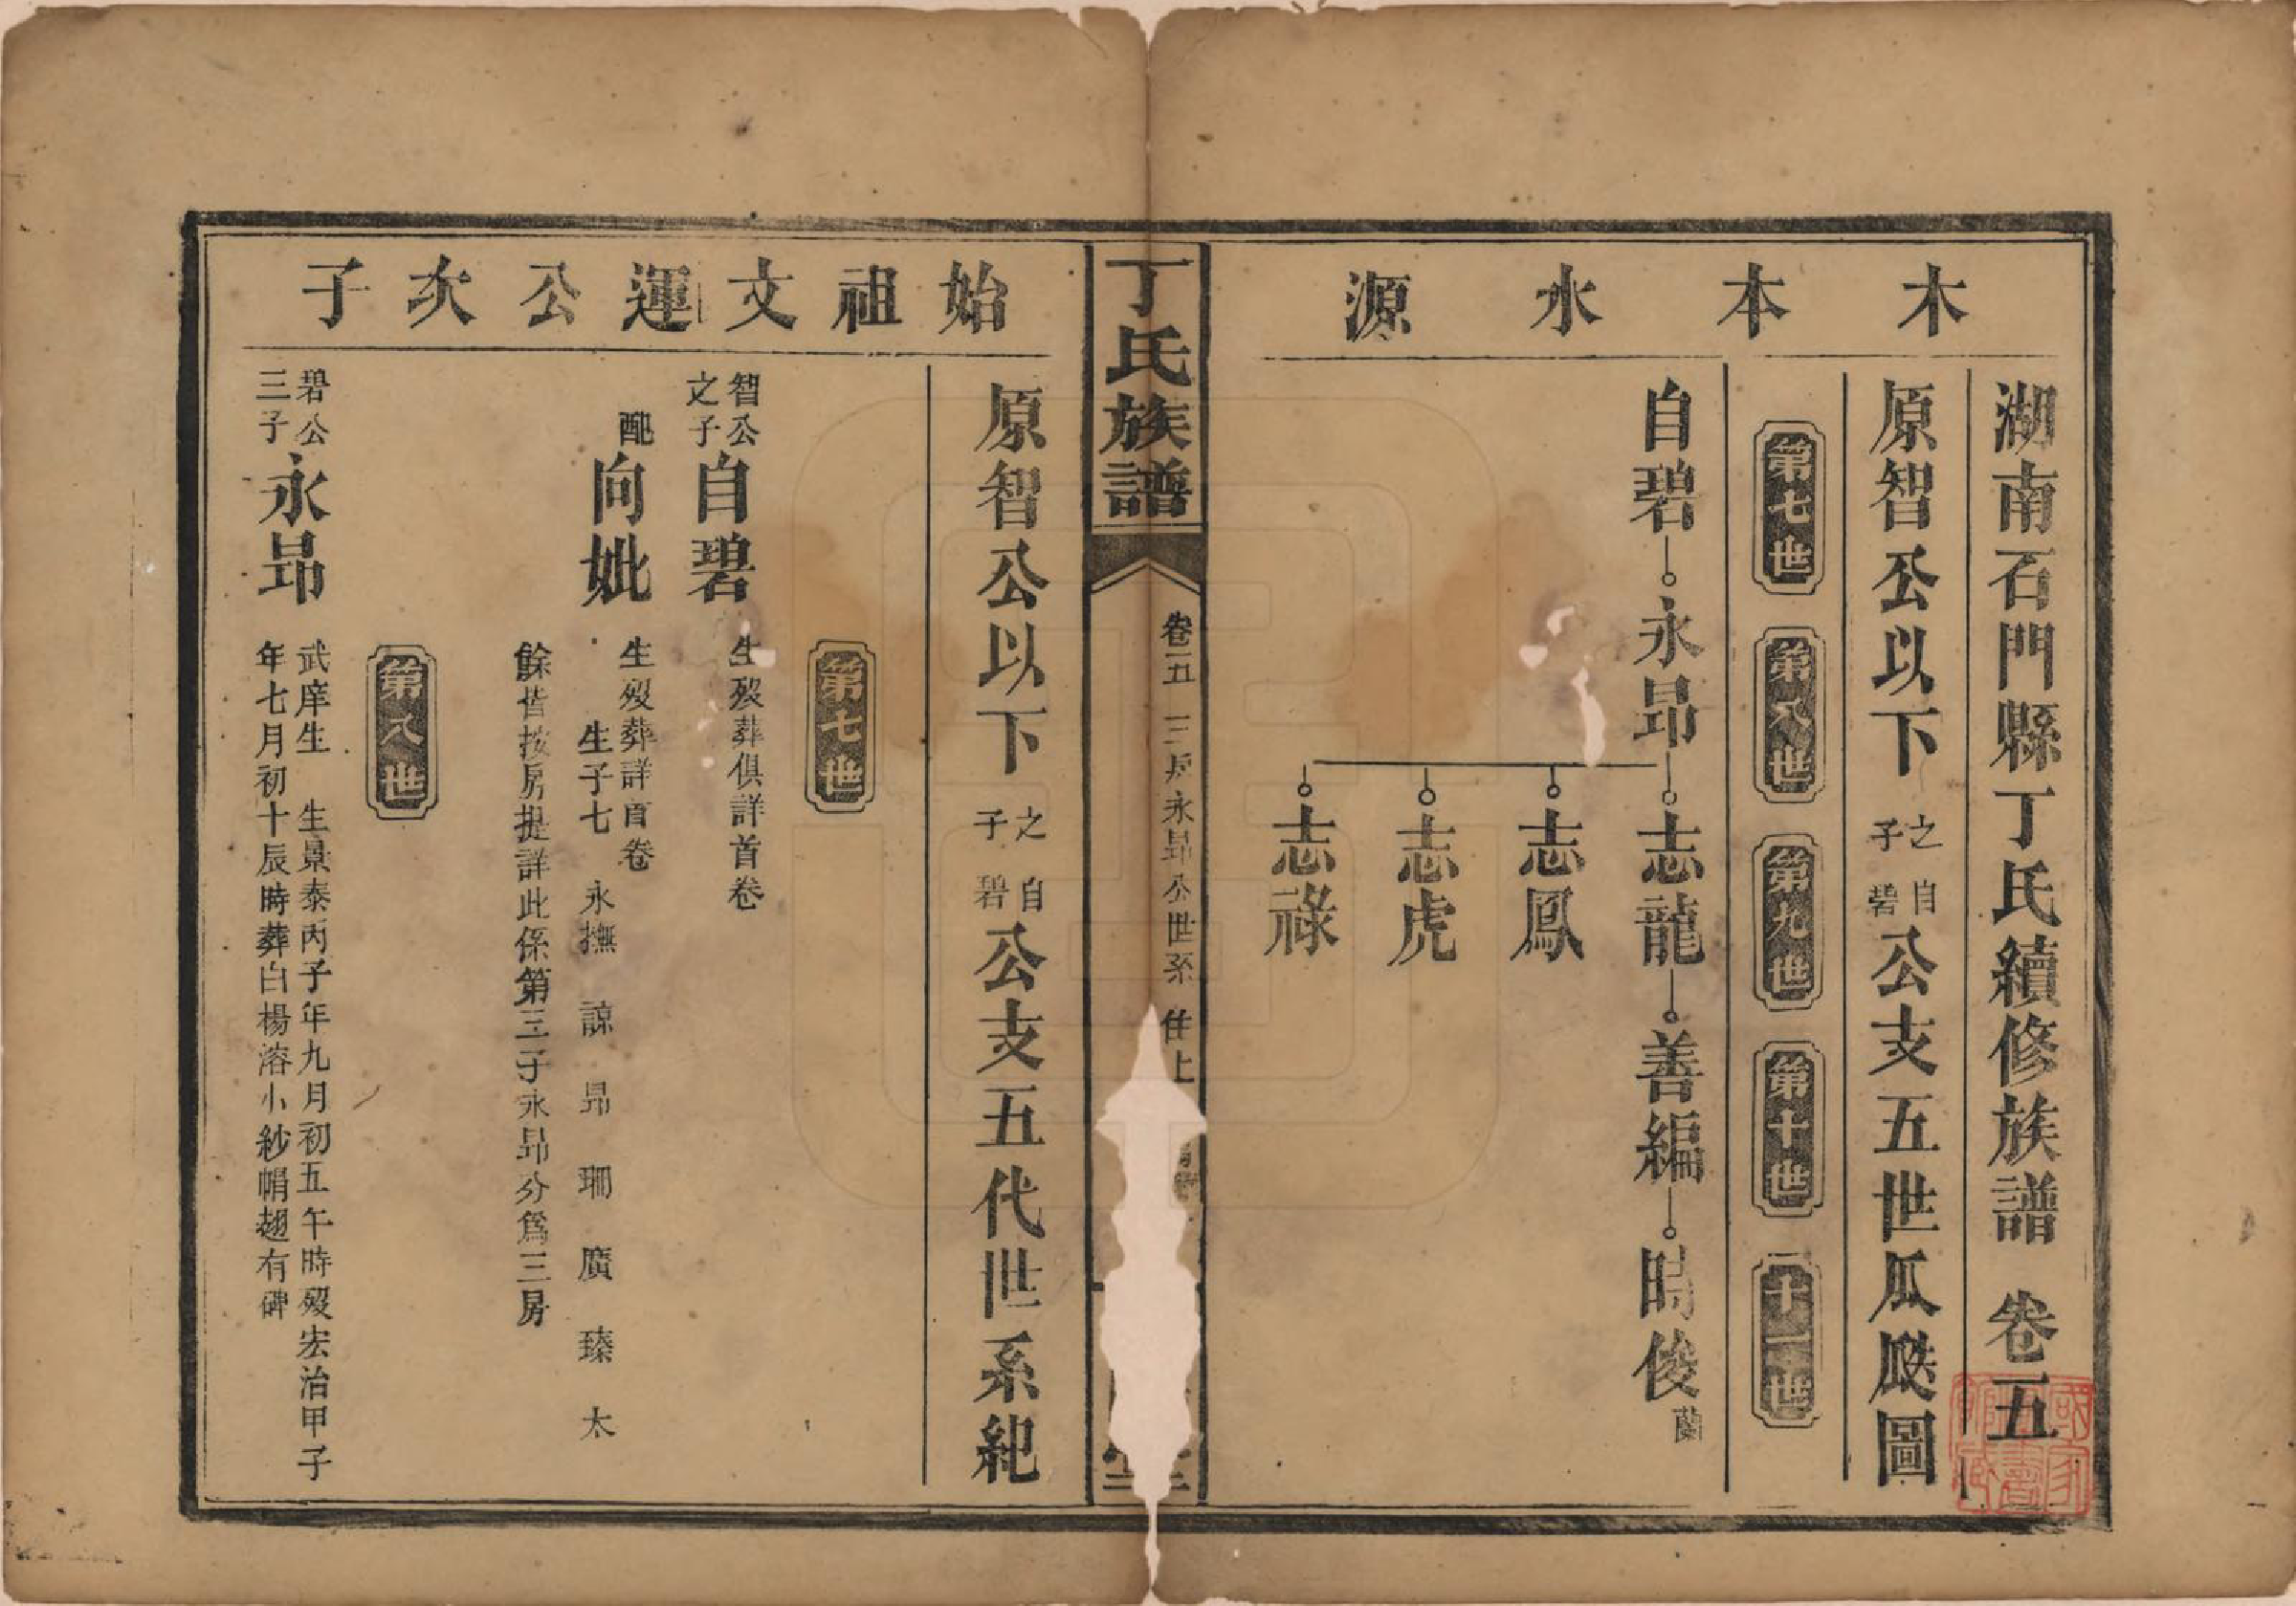 木本水源
湖南石門縣丁氏續修族譜 卷五
原智公以下之子自碧公支五世瓜瓞圖
第七世 第八世 第九世 第十世 十一世
自碧 永昻 志龍 善編 時俊 蘭
志鳳
志虎
志祿
丁氏族譜 卷五 三房永昻公世系 仕上
始祖文運公次子
原智公以下之子自碧公支五代世系紀
第七世
智公之子自碧 生殁葬俱詳首卷
配向妣 生殁葬詳首卷
生子七 永撫 諒 昻 珊 廣 臻 太
餘皆按房提詳此係第三子永昻分爲三房
第八世
碧公三子永昻 武庠生 生景泰丙子年九月初五午時殁宏治甲子
年七月初十辰時葬白楊溶小紗帽翅有碑